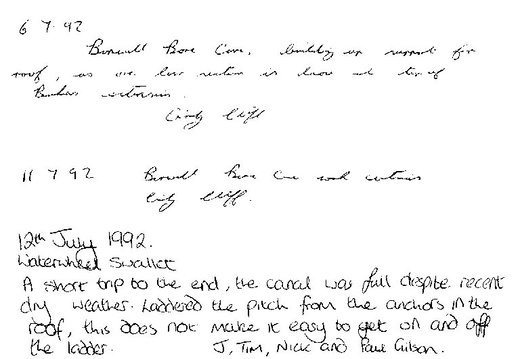 6 7 92
Bone Cave, building up support for
roof, as low section is loose at top of

11 7 92 Bone Cave work continues

12th July 1992.
Waterwheel Swallet
A short trip to the end, the canal was full despite recent
dry weather. Laddered the pitch from the anchors in the
roof, this does not make it easy to get on and off
the ladder. J, Tim, Nick and Paul Gibson.